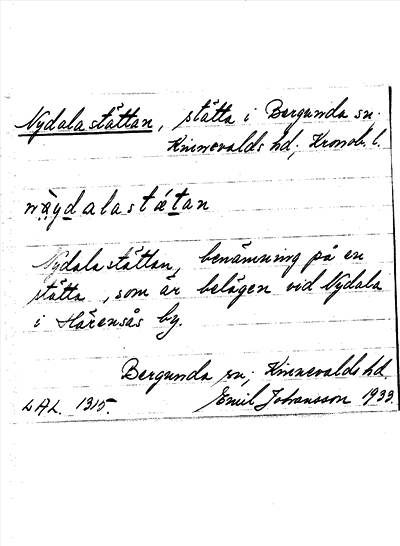 Nydalastättan, stätta i Bergunda sn;
Kinnevalds hd; Kronob. l.
nä̀ydalastætan
Nydalastättan, benämning på en
stätta, som är belägen vid Nydala
i Härensås by.
Bergunda sn; Kinnevalds hd.
LAL. 1315. Emil Johansson 1933.